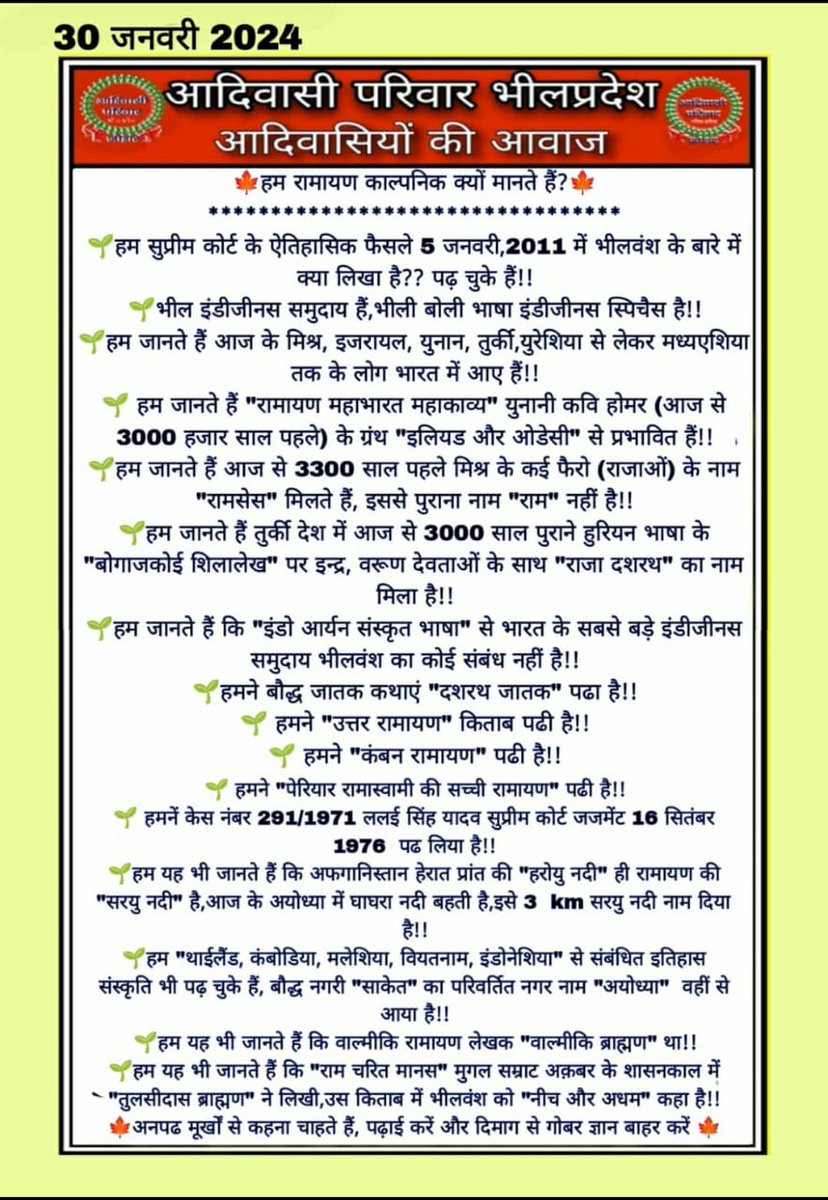 30 जनवरी 2024
आदिवासी परिवार भीलप्रदेश
आदिवासियों की आवाज
🍁हम रामायण काल्पनिक क्यों मानते हैं?🍁
*********************************
🌱हम सुप्रीम कोर्ट के ऐतिहासिक फैसले 5 जनवरी,2011 में भीलवंश के बारे में
क्या लिखा है?? पढ़ चुके हैं!!
🌱भील इंडीजीनस समुदाय हैं,भीली बोली भाषा इंडीजीनस स्पिचैस है!!
🌱हम जानते हैं आज के मिश्र, इजरायल, युनान, तुर्की,युरेशिया से लेकर मध्यएशिया
तक के लोग भारत में आए हैं!!
🌱 हम जानते हैं "रामायण महाभारत महाकाव्य" युनानी कवि होमर (आज से
3000 हजार साल पहले) के ग्रंथ "इलियड और ओडेसी" से प्रभावित हैं!!
🌱हम जानते हैं आज से 3300 साल पहले मिश्र के कई फैरो (राजाओं) के नाम
"रामसेस" मिलते हैं, इससे पुराना नाम "राम" नहीं है!!
🌱हम जानते हैं तुर्की देश में आज से 3000 साल पुराने हुरियन भाषा के
"बोगाजकोई शिलालेख" पर इन्द्र, वरूण देवताओं के साथ "राजा दशरथ" का नाम
मिला है!!
🌱हम जानते हैं कि "इंडो आर्यन संस्कृत भाषा" से भारत के सबसे बड़े इंडीजीनस
समुदाय भीलवंश का कोई संबंध नहीं है!!
🌱हमने बौद्ध जातक कथाएं "दशरथ जातक" पढा है!!
🌱 हमने "उत्तर रामायण" किताब पढी है!!
🌱 हमने "कंबन रामायण" पढी है!!
🌱 हमने "पेरियार रामास्वामी की सच्ची रामायण" पढी है!!
🌱 हमनें केस नंबर 291/1971 ललई सिंह यादव सुप्रीम कोर्ट जजमेंट 16 सितंबर
1976 पढ लिया है!!
🌱हम यह भी जानते हैं कि अफगानिस्तान हेरात प्रांत की "हरोयु नदी" ही रामायण की
"सरयु नदी" है,आज के अयोध्या में घाघरा नदी बहती है,इसे 3 km सरयु नदी नाम दिया
है!!
🌱हम "थाईलैंड, कंबोडिया, मलेशिया, वियतनाम, इंडोनेशिया" से संबंधित इतिहास
संस्कृति भी पढ़ चुके हैं, बौद्ध नगरी "साकेत" का परिवर्तित नगर नाम "अयोध्या" वहीं से
आया है!!
🌱हम यह भी जानते हैं कि वाल्मीकि रामायण लेखक "वाल्मीकि ब्राह्मण" था!!
🌱हम यह भी जानते हैं कि "राम चरित मानस" मुगल सम्राट अक़बर के शासनकाल में
"तुलसीदास ब्राह्मण" ने लिखी,उस किताब में भीलवंश को "नीच और अधम" कहा है!!
🍁अनपढ मूर्खों से कहना चाहते हैं, पढ़ाई करें और दिमाग से गोबर ज्ञान बाहर करें 🍁